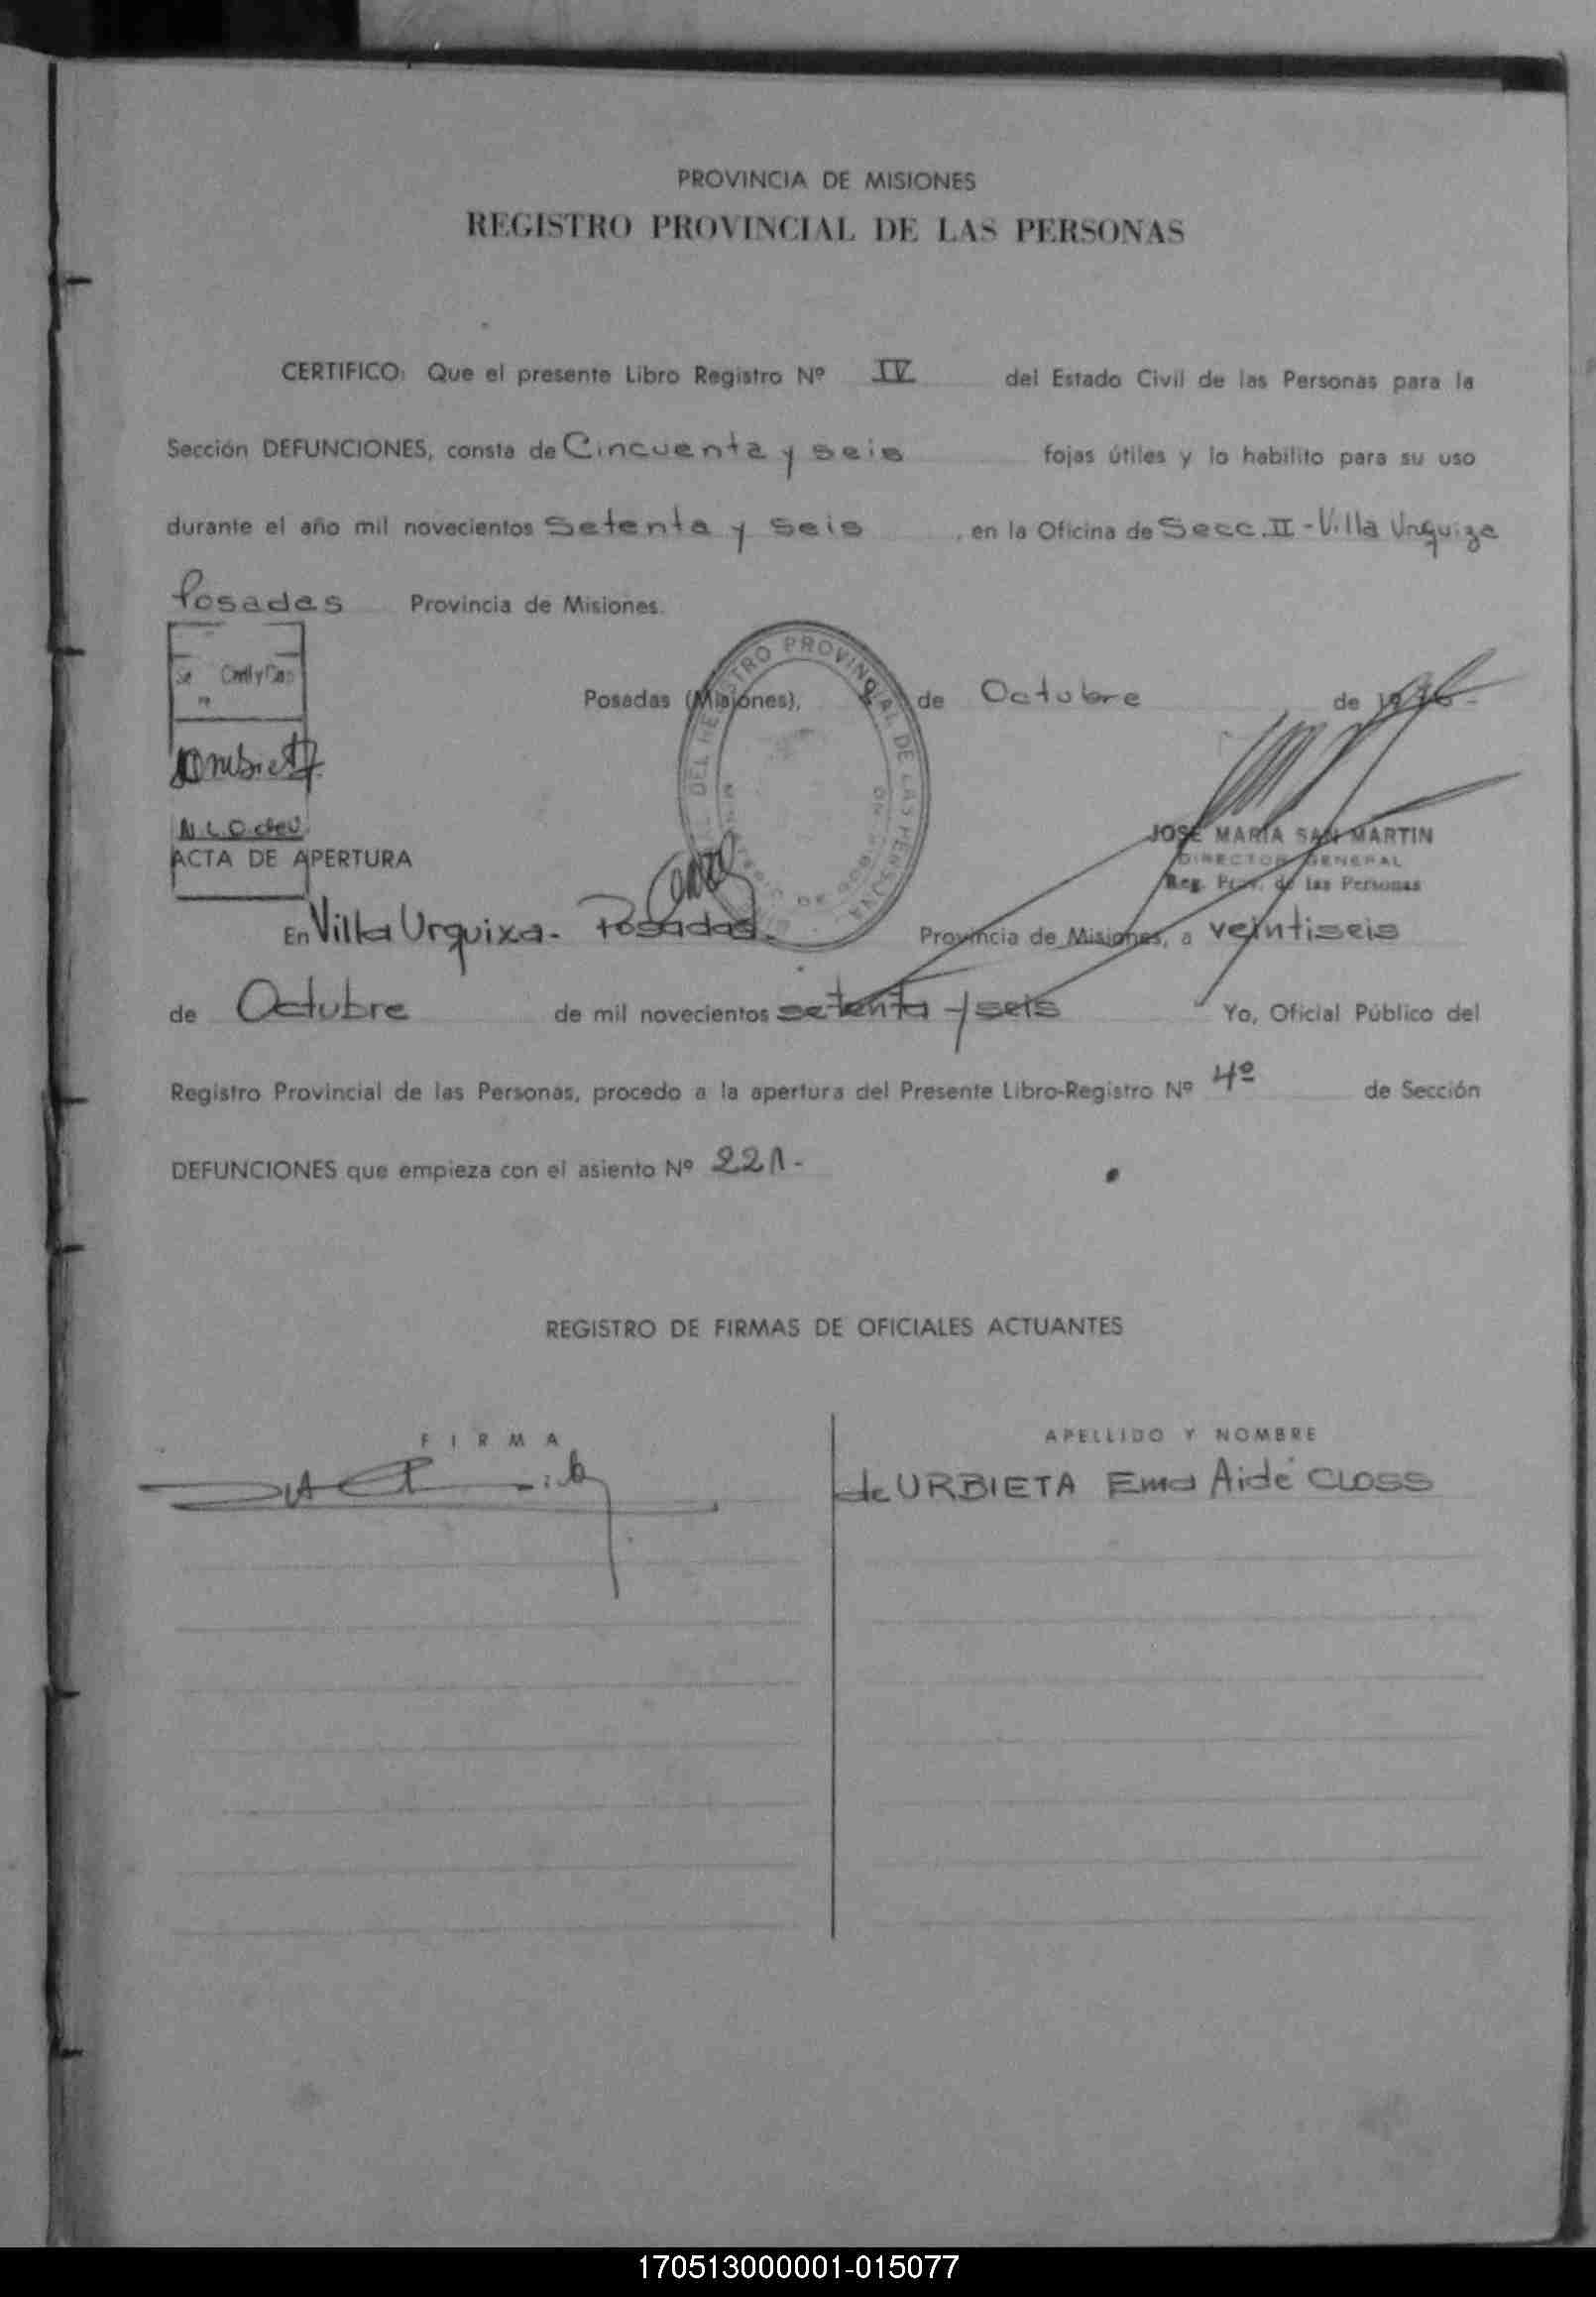 PROVINCIA DE MISIONES
REGISTRO PROVINCIAL DE LAS PERSONAS
CERTIFICO: Que el presente Libro Registro Nº IV del Estado Civil de las Personas para la
Sección DEFUNCIONES, consta de Cincuenta y seis fojas útiles y lo habilito para su uso
durante el año mil novecientos Setenta y Seis, en la Oficina de Secc. II - Villa Urquiza
Posadas Provincia de Misiones.
Posadas (Misiones), de Octubre de 1976
DEL REGISTRO PROVINCIAL DE LAS PERSONAS
JOSE MARIA SAN MARTIN
DIRECTOR GENERAL
Reg. Prov. de las Personas
ACTA DE APERTURA
En Villa Urquixa - Posadas - Provincia de Misiones, a veintiseis
de Octubre de mil novecientos setenta y seis Yo, Oficial Público del
Registro Provincial de las Personas, procedo a la apertura del Presente Libro-Registro Nº 4º de Sección
DEFUNCIONES que empieza con el asiento Nº 221-
REGISTRO DE FIRMAS DE OFICIALES ACTUANTES
FIRMA APELLIDO Y NOMBRE
de URBIETA Ema Aidé CLOSS
170513000001-015077